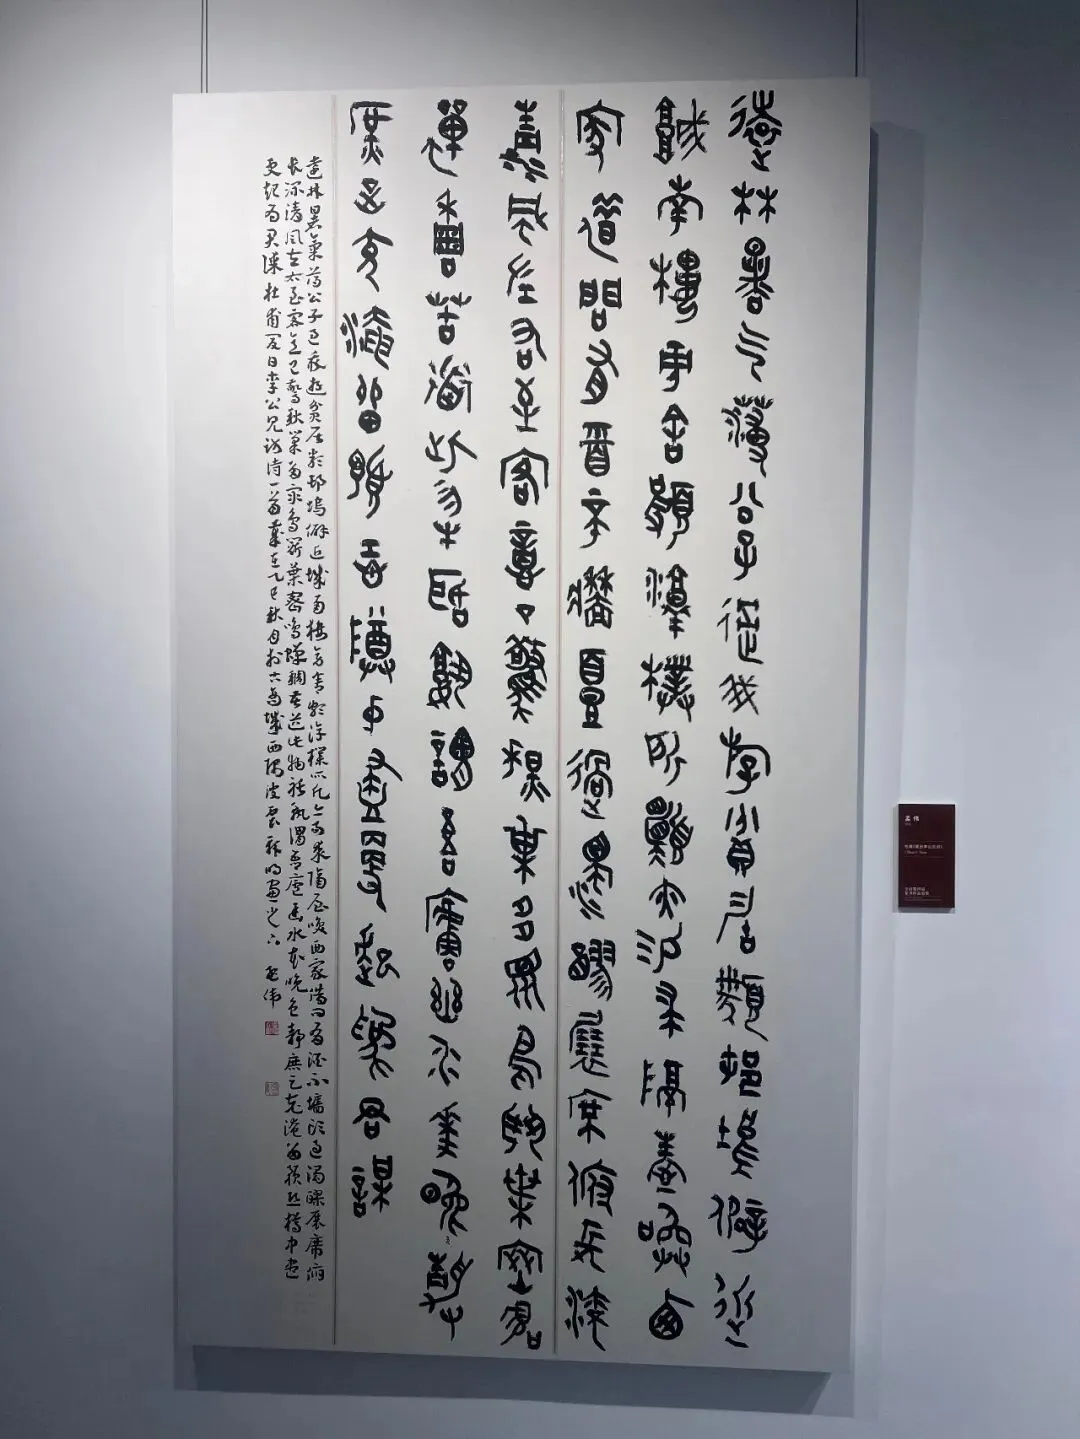 遠林暑气薄公子過我游貧居類邨塢僻近
城南樓旁舍頗淳樸所願亦求隔屋喚西
家道問有酒不牆頭過濁醪展席俯長流
清風左右至客意已驚秋巢多眾鳥鬥葉密鳴
蟬稠苦道此物聒孰謂吾廬幽水花晚色靜
庶足充淹留預恐尊中盡更起為君謀
遠林暑氣薄公子過我游貧居類邨塢僻近城南樓旁舍頗淳樸所願亦易求隔屋喚西家借問有酒不牆頭過濁醪展席俯
長流清風左右至客意已驚秋巢多眾鳥鬥葉密鳴蟬稠苦道此物聒孰謂吾廬幽水花晚色靜庶足充淹留預恐樽中盡
更起為君謀杜甫夏日李公見訪詩一首歲在乙巳秋月於六城西隅
孟伟